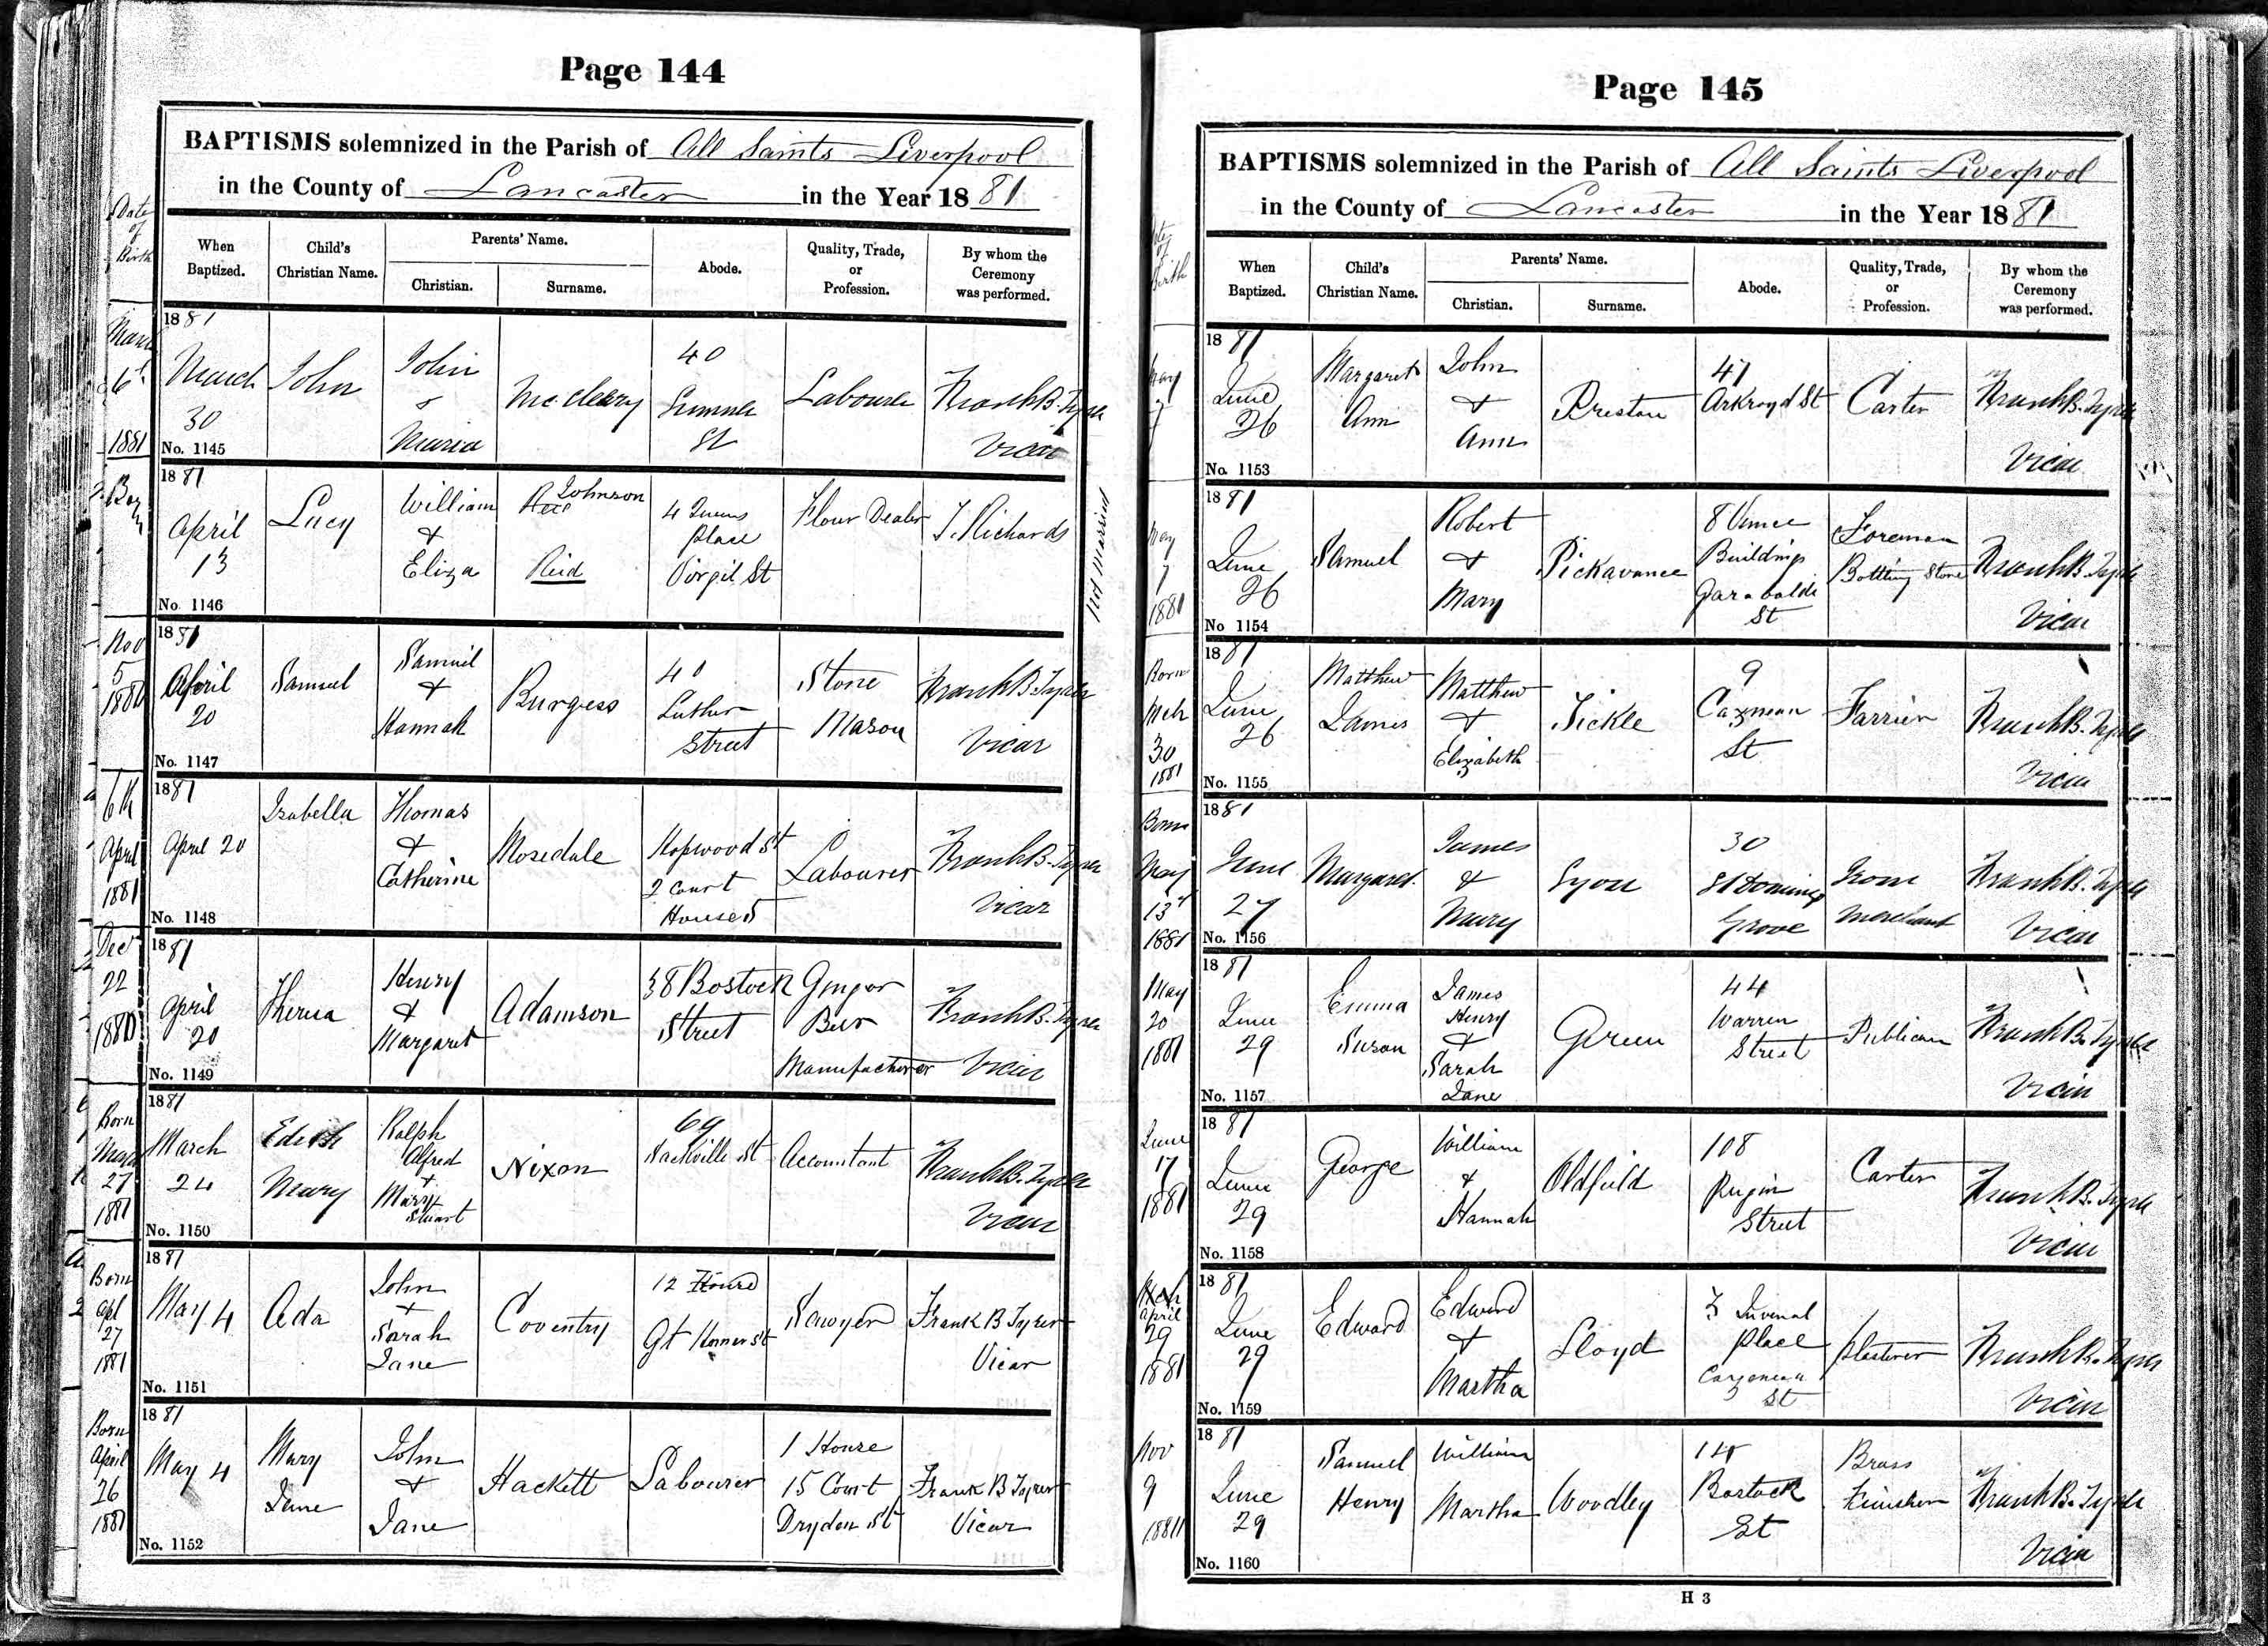 Page 144
BAPTISMS solemnized in the Parish of All Saints Liverpool
in the County of Lancaster in the Year 1881
Date
of
Birth
When
Baptized.
Child's
Christian Name.
Parents' Name.
Christian.
Surname.
Abode.
Quality, Trade,
or
Profession.
By whom the
Ceremony
was performed.
1881
March
30
No. 1145
John
John
&
Maria
McCleary
40
St
Labourer
Frank B. Tyrer
Vicar
1881
1881
April
13
No. 1146
Lucy
William
&
Eliza
Johnson
Reid
4 Queens
Place
Virgil St
Flour Dealer
T. Richards
Not married
Nov
5
1880
1881
April
20
No. 1147
Samuel
Samuel
&
Hannah
Burgess
40
Luther
Street
Stone
Mason
Frank B. Tyrer
Vicar
6th
April
1881
1881
April 20
No. 1148
Isabella
Thomas
&
Catherine
Mosedale
Hopwood St
2 Court
House 5
Labourer
Frank B. Tyrer
Vicar
Dec
22
1880
1881
April
20
No. 1149
Theresa
Henry
&
Margaret
Adamson
38 Bostock
Street
Ginger
Beer
Manufacturer
Frank B. Tyrer
Vicar
Born
27
1881
1881
March
24
No. 1150
Edith
Mary
Ralph
Alfred
+
Mary
Stuart
Nixon
69
Sackville St
Accountant
Frank B. Tyrer
Vicar
Born
Apl
27
1881
1881
May 4
No. 1151
Ada
John
+
Sarah
Jane
Coventry
12 House
Gt Homer St
Sawyer
Frank B Tyrer
Vicar
Born
April
26
1881
1881
May 4
No. 1152
Mary
Jane
John
+
Jane
Hackett
Labourer
1 House
15 Court
Dryden St
Frank B Tyrer
Vicar
Page 145
BAPTISMS solemnized in the Parish of All Saints Liverpool
in the County of Lancaster in the Year 1881
When
Baptized.
Child's
Christian Name.
Parents' Name.
Christian.
Surname.
Abode.
Quality, Trade,
or
Profession.
By whom the
Ceremony
was performed.
1881
June
26
No. 1153
Margaret
Ann
John
+
Ann
Preston
47
Arkroyd St
Carter
Frank B. Tyrer
Vicar
May
7
1881
1881
June
26
No 1154
Samuel
Robert
+
Mary
Pickavance
8 Vince
Buildings
Garabaldi
St
Foreman
Bottling Store
Frank B. Tyrer
Vicar
Born
Mch
30
1881
1881
June
26
No. 1155
Matthew
James
Matthew
+
Elizabeth
Tickle
9
Cazneau
St
Farrier
Frank B. Tyrer
Vicar
Born
May
13
1881
1881
June
27
No. 1156
Margaret
James
&
Mary
Lyon
30
St Domingo
Grove
Iron
Merchant
Frank B. Tyrer
Vicar
May
20
1881
1881
June
29
No. 1157
Emma
Susan
James
Henry
+
Sarah
Jane
Green
44
Warren
Street
Publican
Frank B. Tyrer
Vicar
June
17
1881
1881
June
29
No. 1158
George
William
+
Hannah
Oldfield
108
Pugin
Street
Carter
Frank B. Tyrer
Vicar
April
29
1881
1881
June
29
No. 1159
Edward
Edward
+
Martha
Lloyd
3 Juvenal
Place
Cazneau
St
Plasterer
Frank B. Tyrer
Vicar
Nov
9
1881
June
29
No. 1160
Samuel
Henry
William
Martha
Woodley
Bostock
St
Brass
Finisher
Frank B. Tyrer
Vicar
H 3